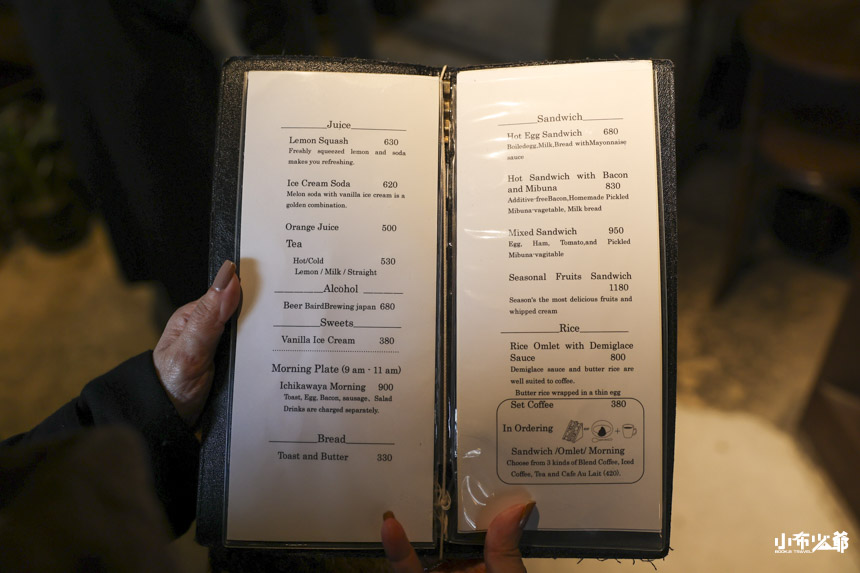 Juice
Lemon Squash 630
Freshly squeezed lemon and soda
makes you refreshing.
Ice Cream Soda 620
Melon soda with vanilla ice cream is a
golden combination.
Orange Juice 500
Tea
Hot/Cold 530
Lemon / Milk / Straight
Alcohol
Beer BairdBrewing japan 680
Sweets
Vanilla Ice Cream 380
Morning Plate (9 am - 11 am)
Ichikawaya Morning 900
Toast, Egg, Bacon, sausage, Salad
Drinks are charged separately.
Bread
Toast and Butter 330
Sandwich
Hot Egg Sandwich 680
Boiledegg,Milk,Bread withMayonnaise
sauce
Hot Sandwich with Bacon
and Mibuna 830
Additive-freeBacon,Homemade Pickled
Mibuna-vagetable, Milk bread
Mixed Sandwich 950
Egg, Ham, Tomato,and Pickled
Mibuna-vagitable
Seasonal Fruits Sandwich
1180
Season's the most delicious fruits and
whipped cream
Rice
Rice Omlet with Demiglace
Sauce 800
Demiglace sauce and butter rice are
well suited to coffee.
Butter rice wrapped in a thin egg
Set Coffee 380
In Ordering or +
Sandwich /Omlet/ Morning
Choose from 3 kinds of Blend Coffee, Iced
Coffee, Tea and Cafe Au Lait (420).
小布少爺
BOOKIE TRAVEL